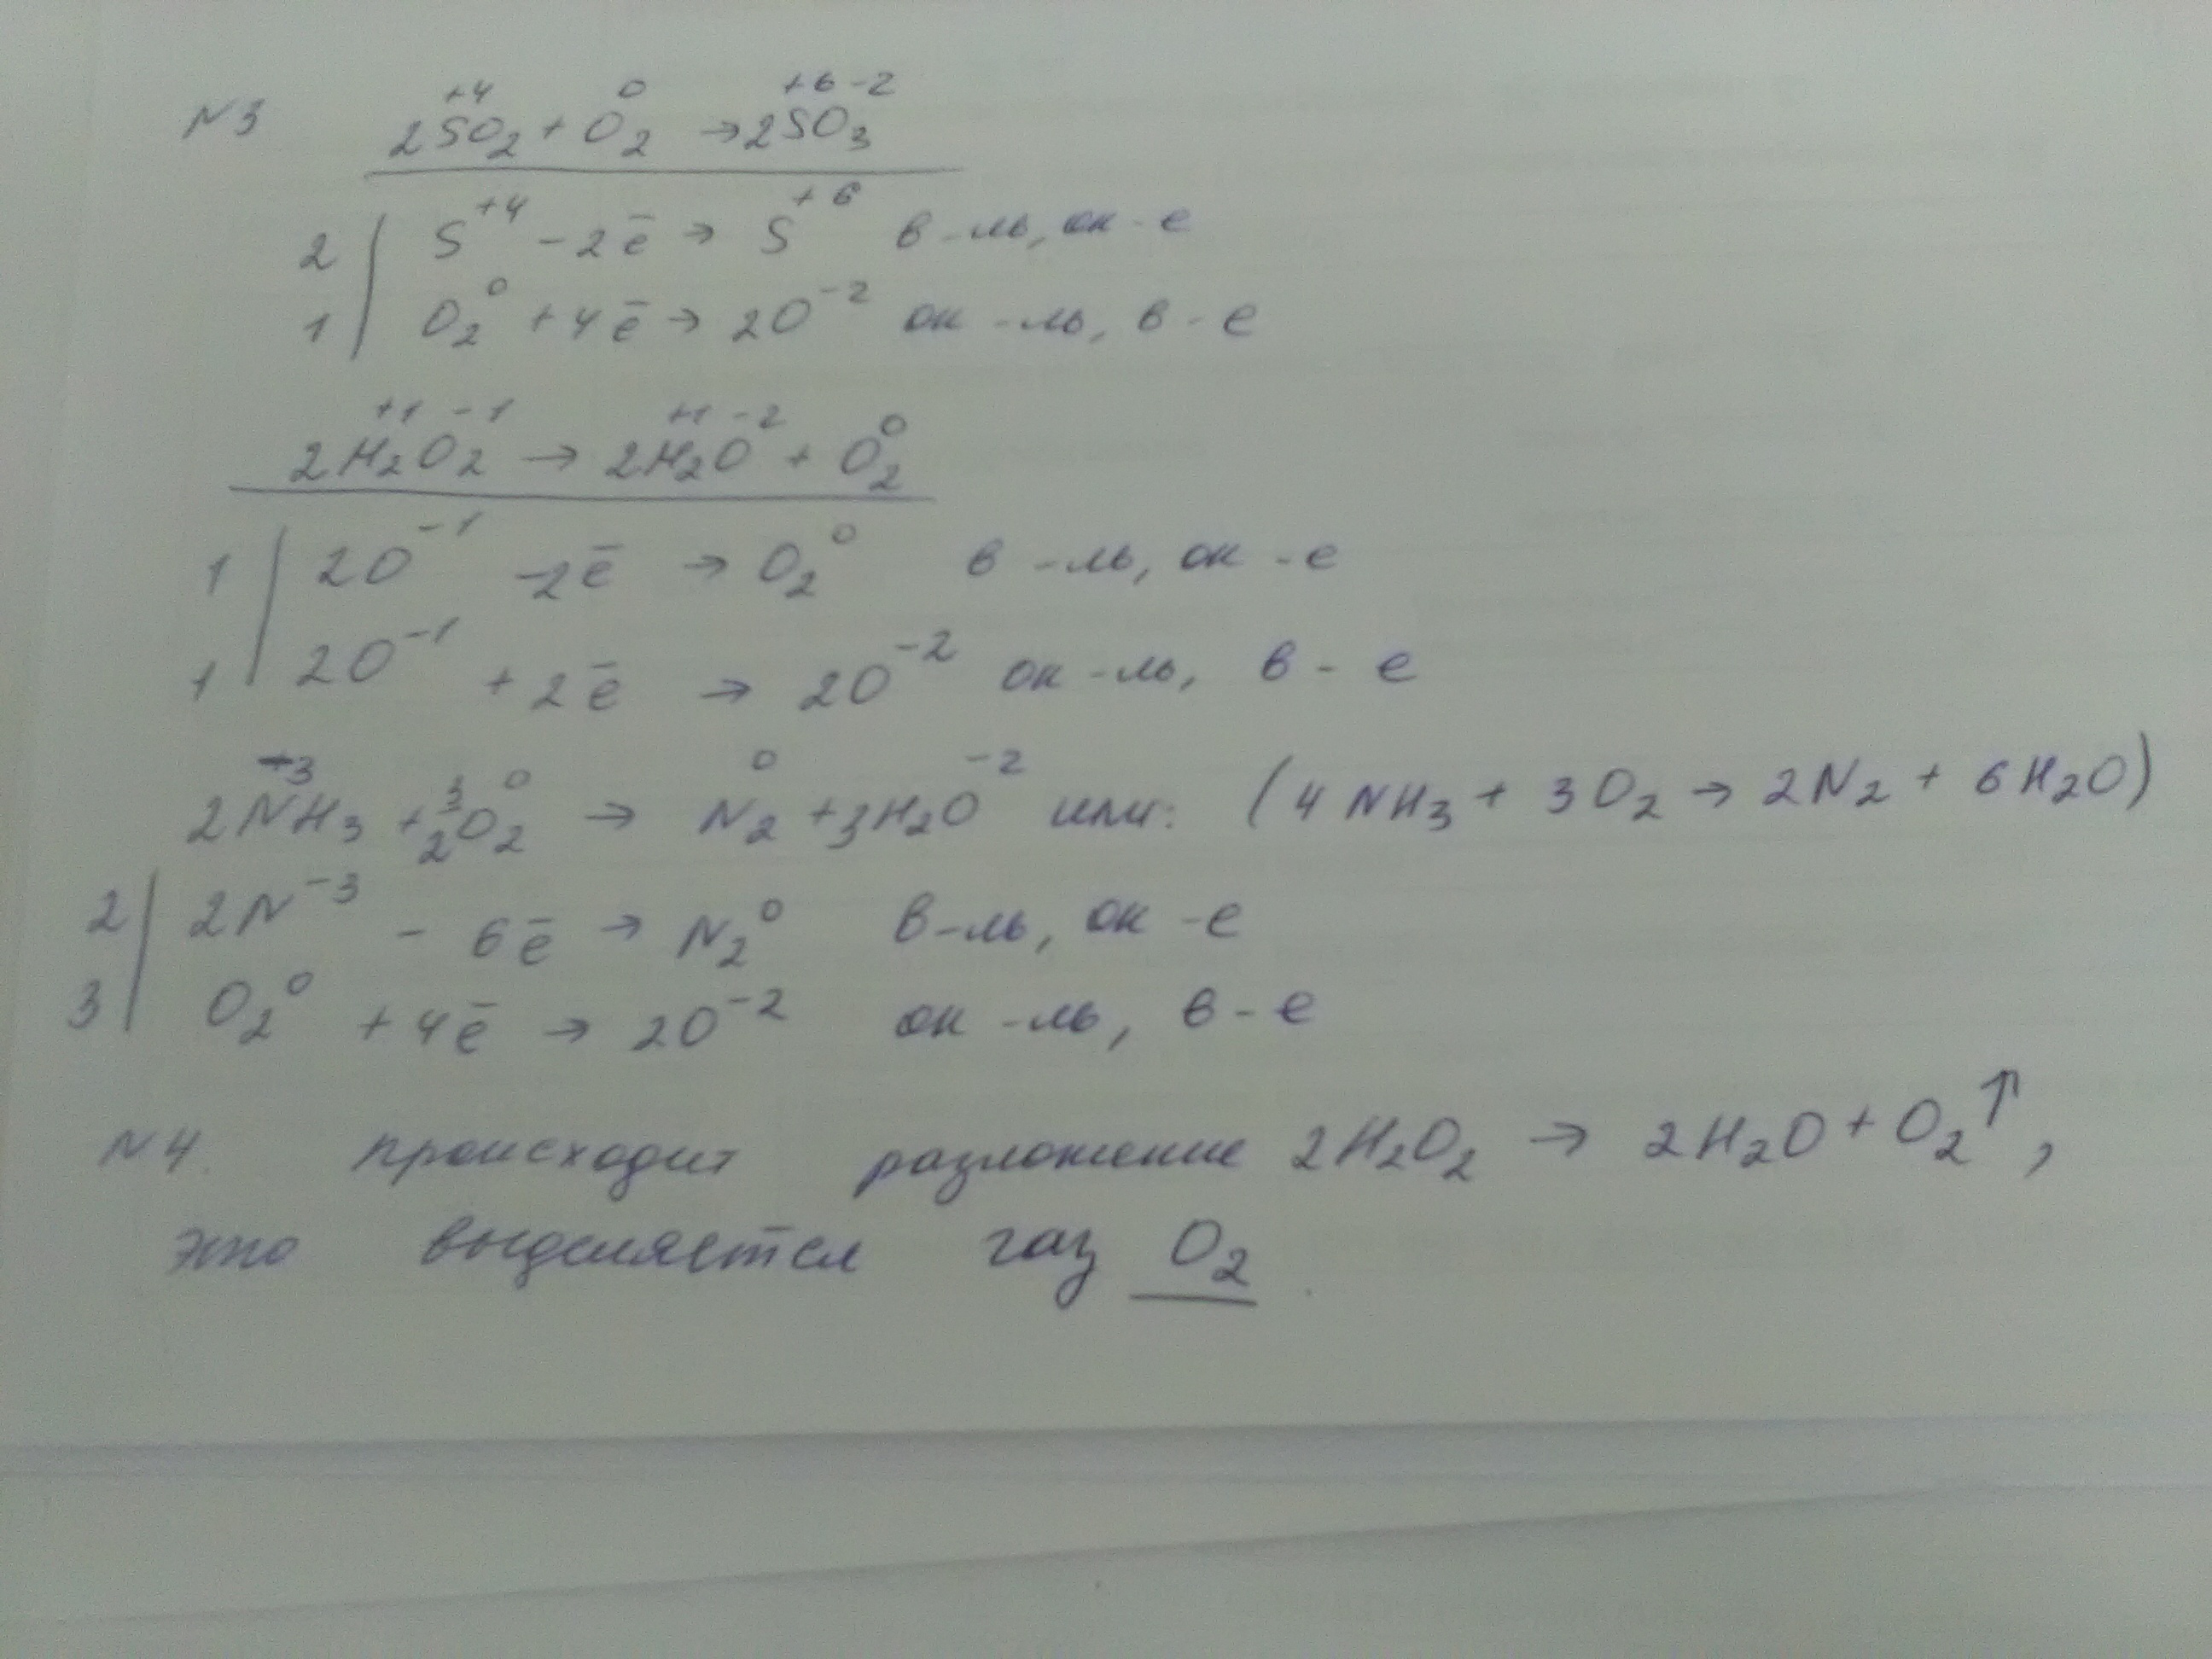 +4 0 +6 -2
N3 2SO2 + O2 → 2SO3
2 | S+4 - 2ē → S+6 в-ль, ок-е
1 | O2 0 + 4ē → 2O-2 ок-ль, в-е
+1 -1 +1 -2 0
2H2O2 → 2H2O + O2
1 | 2O-1 -2ē → O2 0 в-ль, ок-е
1 | 2O-1 + 2ē → 2O-2 ок-ль, в-е
-3 0 0 -2
2NH3 + 3/2O2 → N2 + 3H2O или: (4NH3 + 3O2 → 2N2 + 6H2O)
2 | 2N-3 - 6ē → N2 0 в-ль, ок-е
3 | O2 0 + 4ē → 2O-2 ок-ль, в-е
N4. происходит разложение 2H2O2 → 2H2O + O2↑,
это выделяется газ O2.